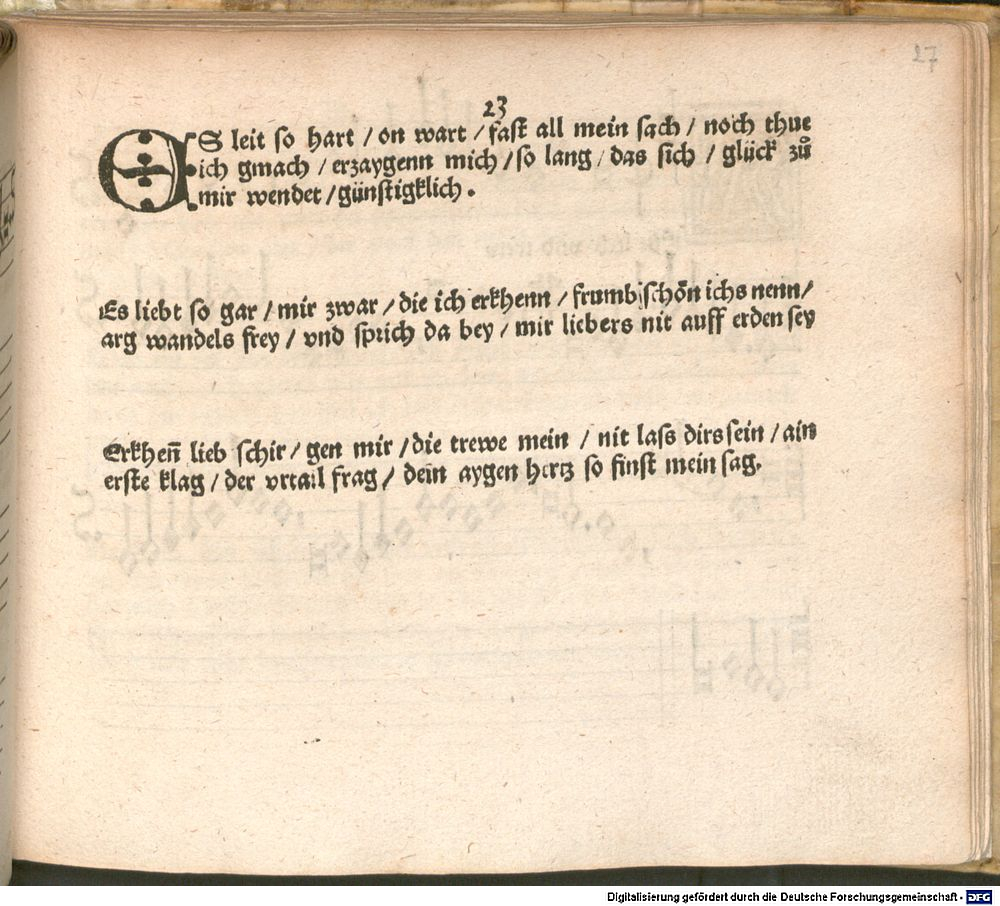 27
23
ES leit so hart / on wart / fast all mein sach / noch thue
ich gmach / erzaygenn mich / so lang / das sich / glück zů
mir wendet / günstigklich.
Es liebt so gar / mir zwar / die ich erkhenn / frumb schön ichs nenn /
arg wandels frey / vnd sprich da bey / mir liebers nit auff erden sey
Erkhen̄ lieb schir / gen mir / die trewe mein / nit lass dirs sein / ain
erste klag / der vrtail frag / dein aygen hertz so finst mein sag.
Digitalisierung gefördert durch die Deutsche Forschungsgemeinschaft - DFG